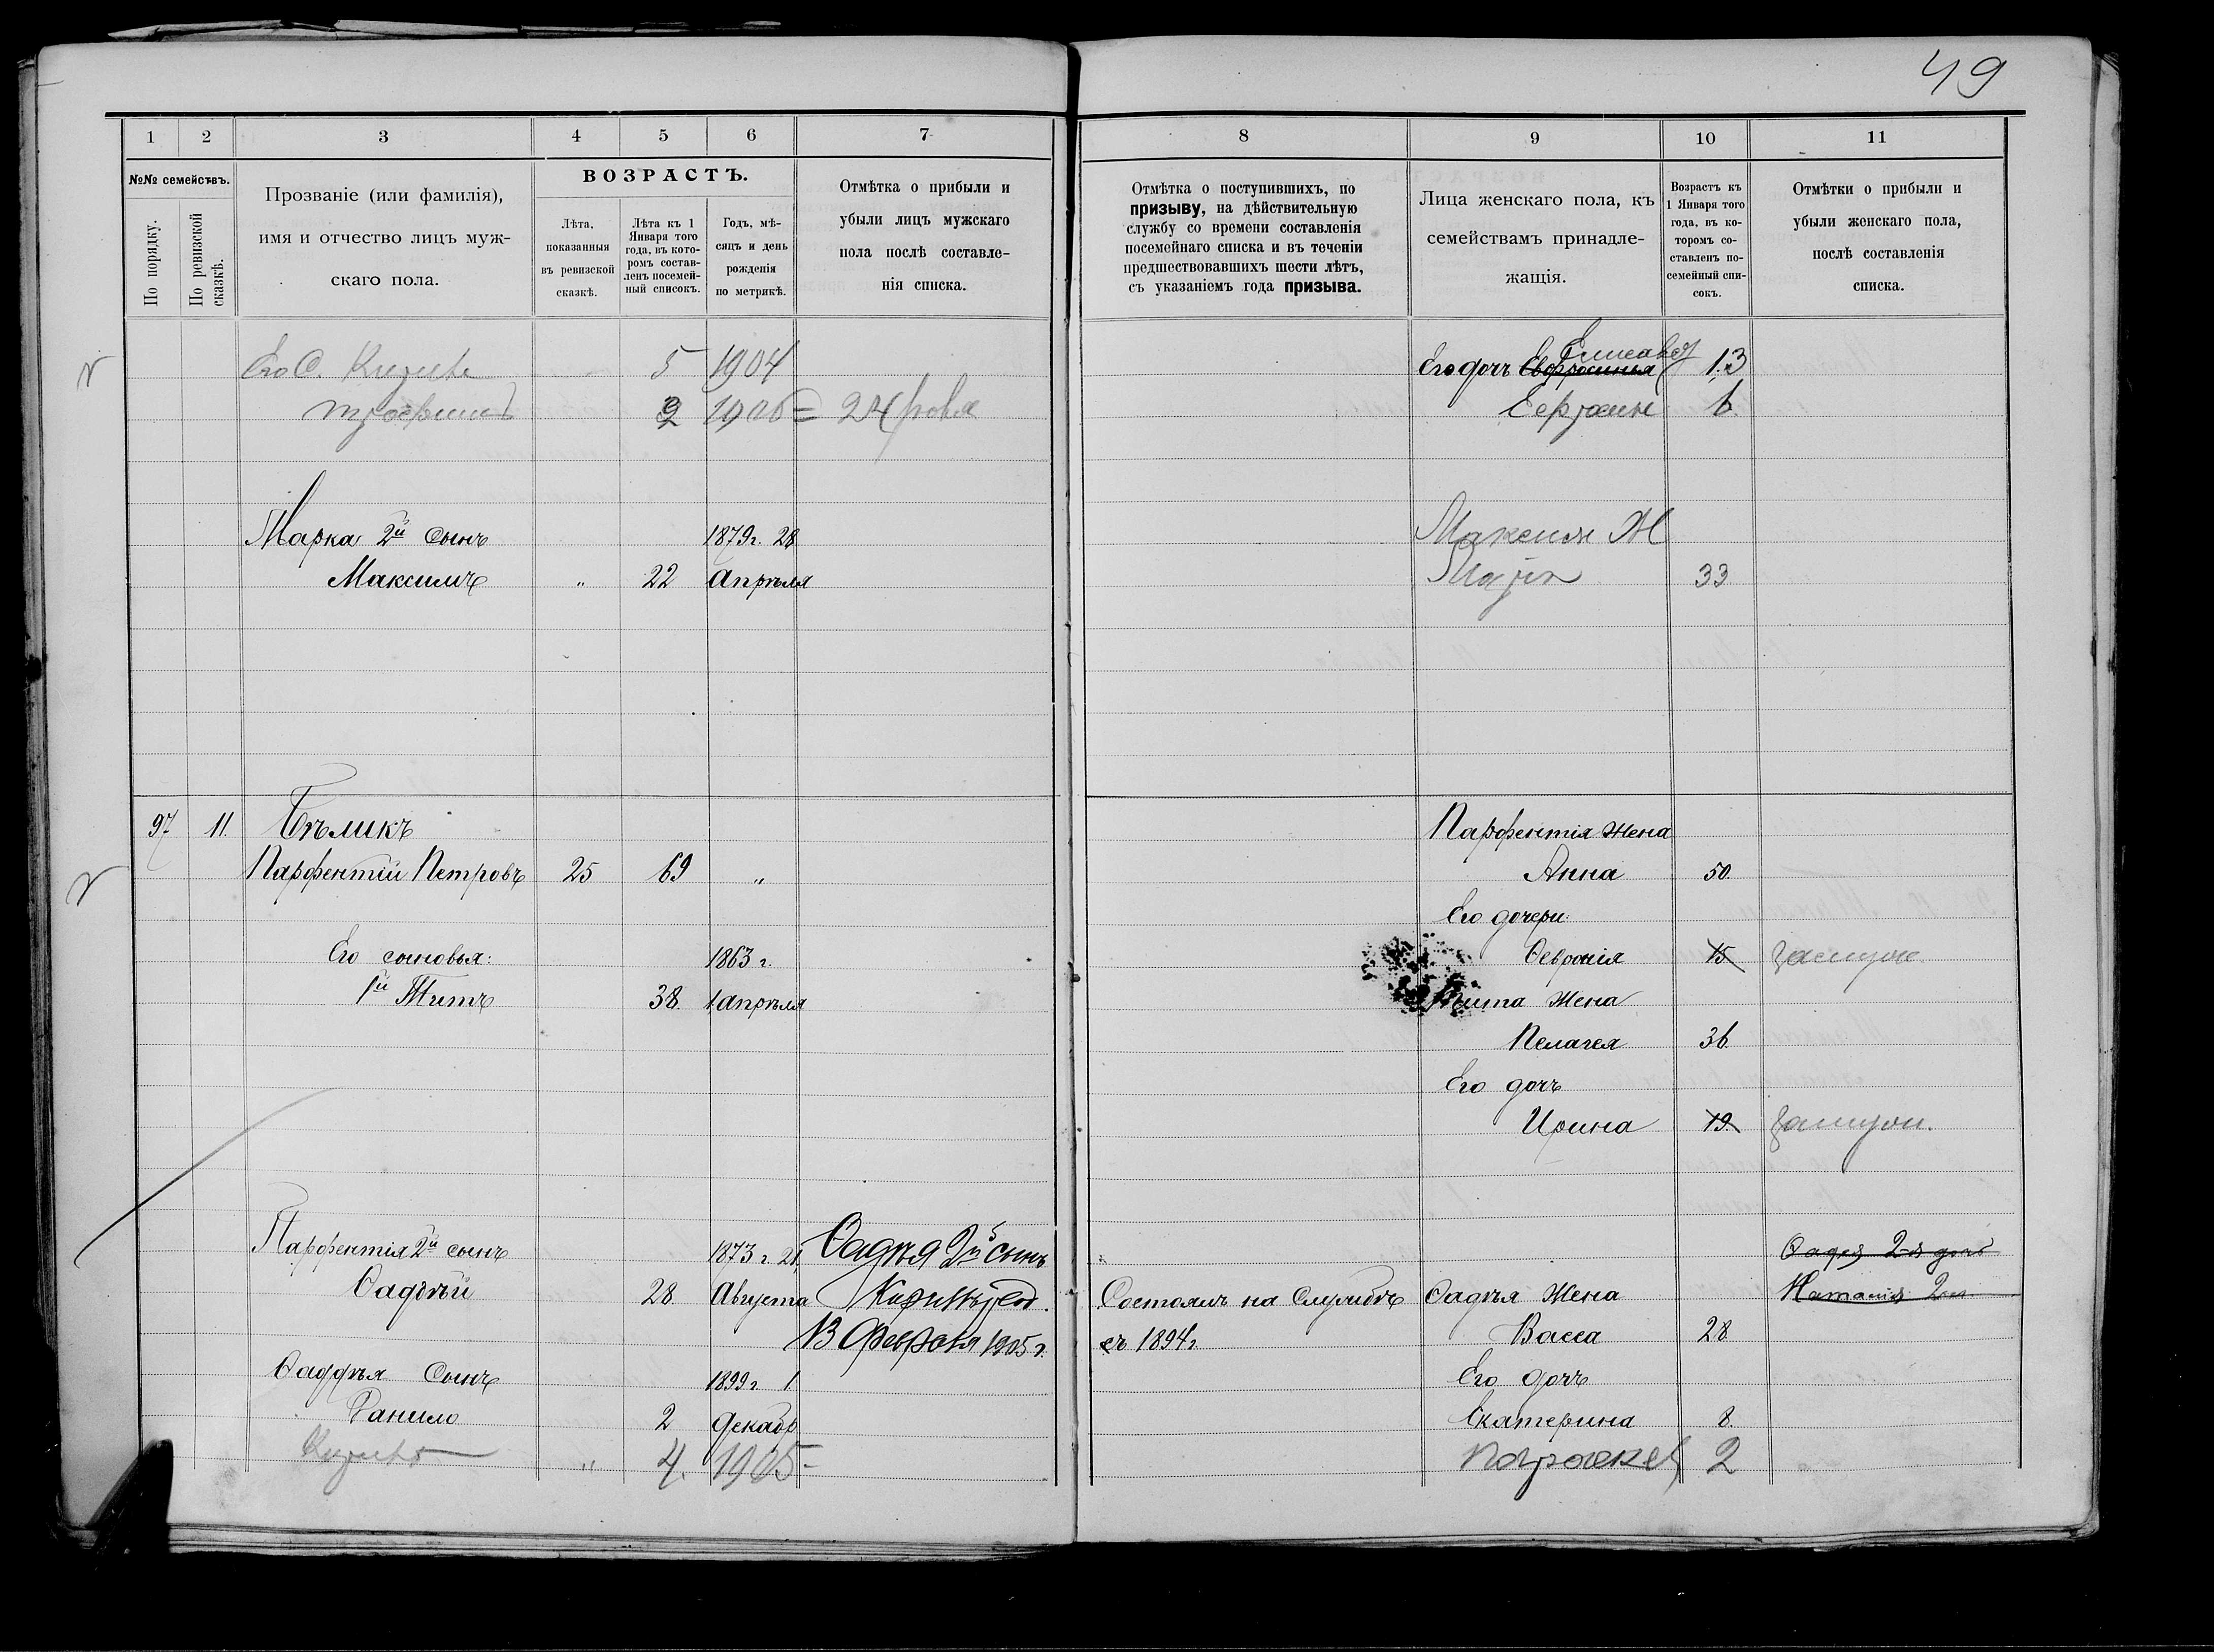 49
1 2 3 4 5 6 7
№№ семействъ.
По порядку.
По ревизской сказкѣ.
Прозваніе (или фамилія),
имя и отчество лицъ муж-
скаго пола.
ВОЗРАСТЪ.
Лѣта,
показанныя
въ ревизской
сказкѣ.
Лѣта къ 1
Января того
года, въ кото-
ромъ состав-
ленъ посемей-
ный списокъ.
Годъ, мѣ-
сяцъ и день
рожденія
по метрикѣ.
Отмѣтка о прибыли и
убыли лицъ мужскаго
пола послѣ составле-
нія списка.
Его С. 5 1904
2
Марка 2й сынъ 1879г. 28
Максимъ " 22 апрѣля
97 11. Бѣликъ
Парфентій Петровъ 25 69 "
Его сыновья: 1863 г.
1й Титъ 38. 1 апрѣля
Парфентія 2й сынъ 1873 г. 21 Фадѣя 2й сынъ
Фадѣй 28. Августа
13 Февраля 1905 г.
Фаддѣя сынъ 1899 г. 1
Данило 2 декабр
" 4. 1905 -
8 9 10 11
Отмѣтка о поступившихъ, по
призыву, на дѣйствительную
службу со времени составленія
посемейнаго списка и въ теченіи
предшествовавшихъ шести лѣтъ,
съ указаніемъ года призыва.
Лица женскаго пола, къ
семействамъ принадле-
жащія.
Возрастъ къ
1 Января того
года, въ ко-
торомъ со-
ставленъ по-
семейный спи-
сокъ.
Отмѣтки о прибыли и
убыли женскаго пола,
послѣ составленія
списка.
Его дочь Евфросинья 13
6
Максим Ж
33
Парфентія жена
Анна 50
Его дочери:
Февронія 15 замужем
Тита жена
Пелагея 36
Его дочь
Ирина 19 замужем.
Фадея 2-я дочь
Состоялъ на службѣ Фадѣя жена Наталія
съ 1894 г. Васса 28
Его дочь
Екатерина 8
Параскев 2